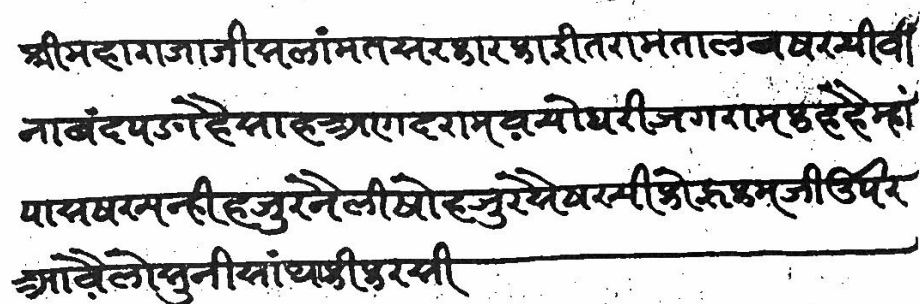 श्रीमहाराजाजीसलांमतसरकारकाईतरामतालबषरचीवी
नाबंदपडौहैसाहआणदरामवचोधरीजगरामकहैहैम्हां
पासषरचनहीहजुरनैलीषोहजुरसैषरचीकोहुकमजीऊपर
आवैलोसुनीसांथाकीकरसी